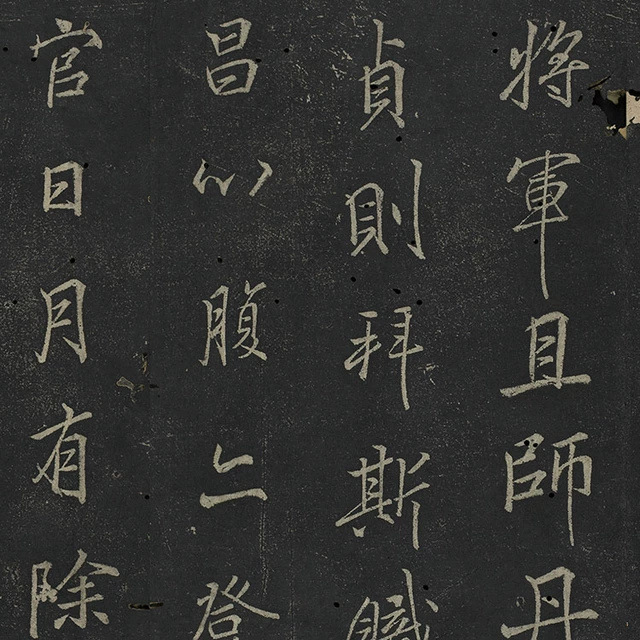 將軍且師丹
貞則拜斯職
昌以腹亡登
官日月有除